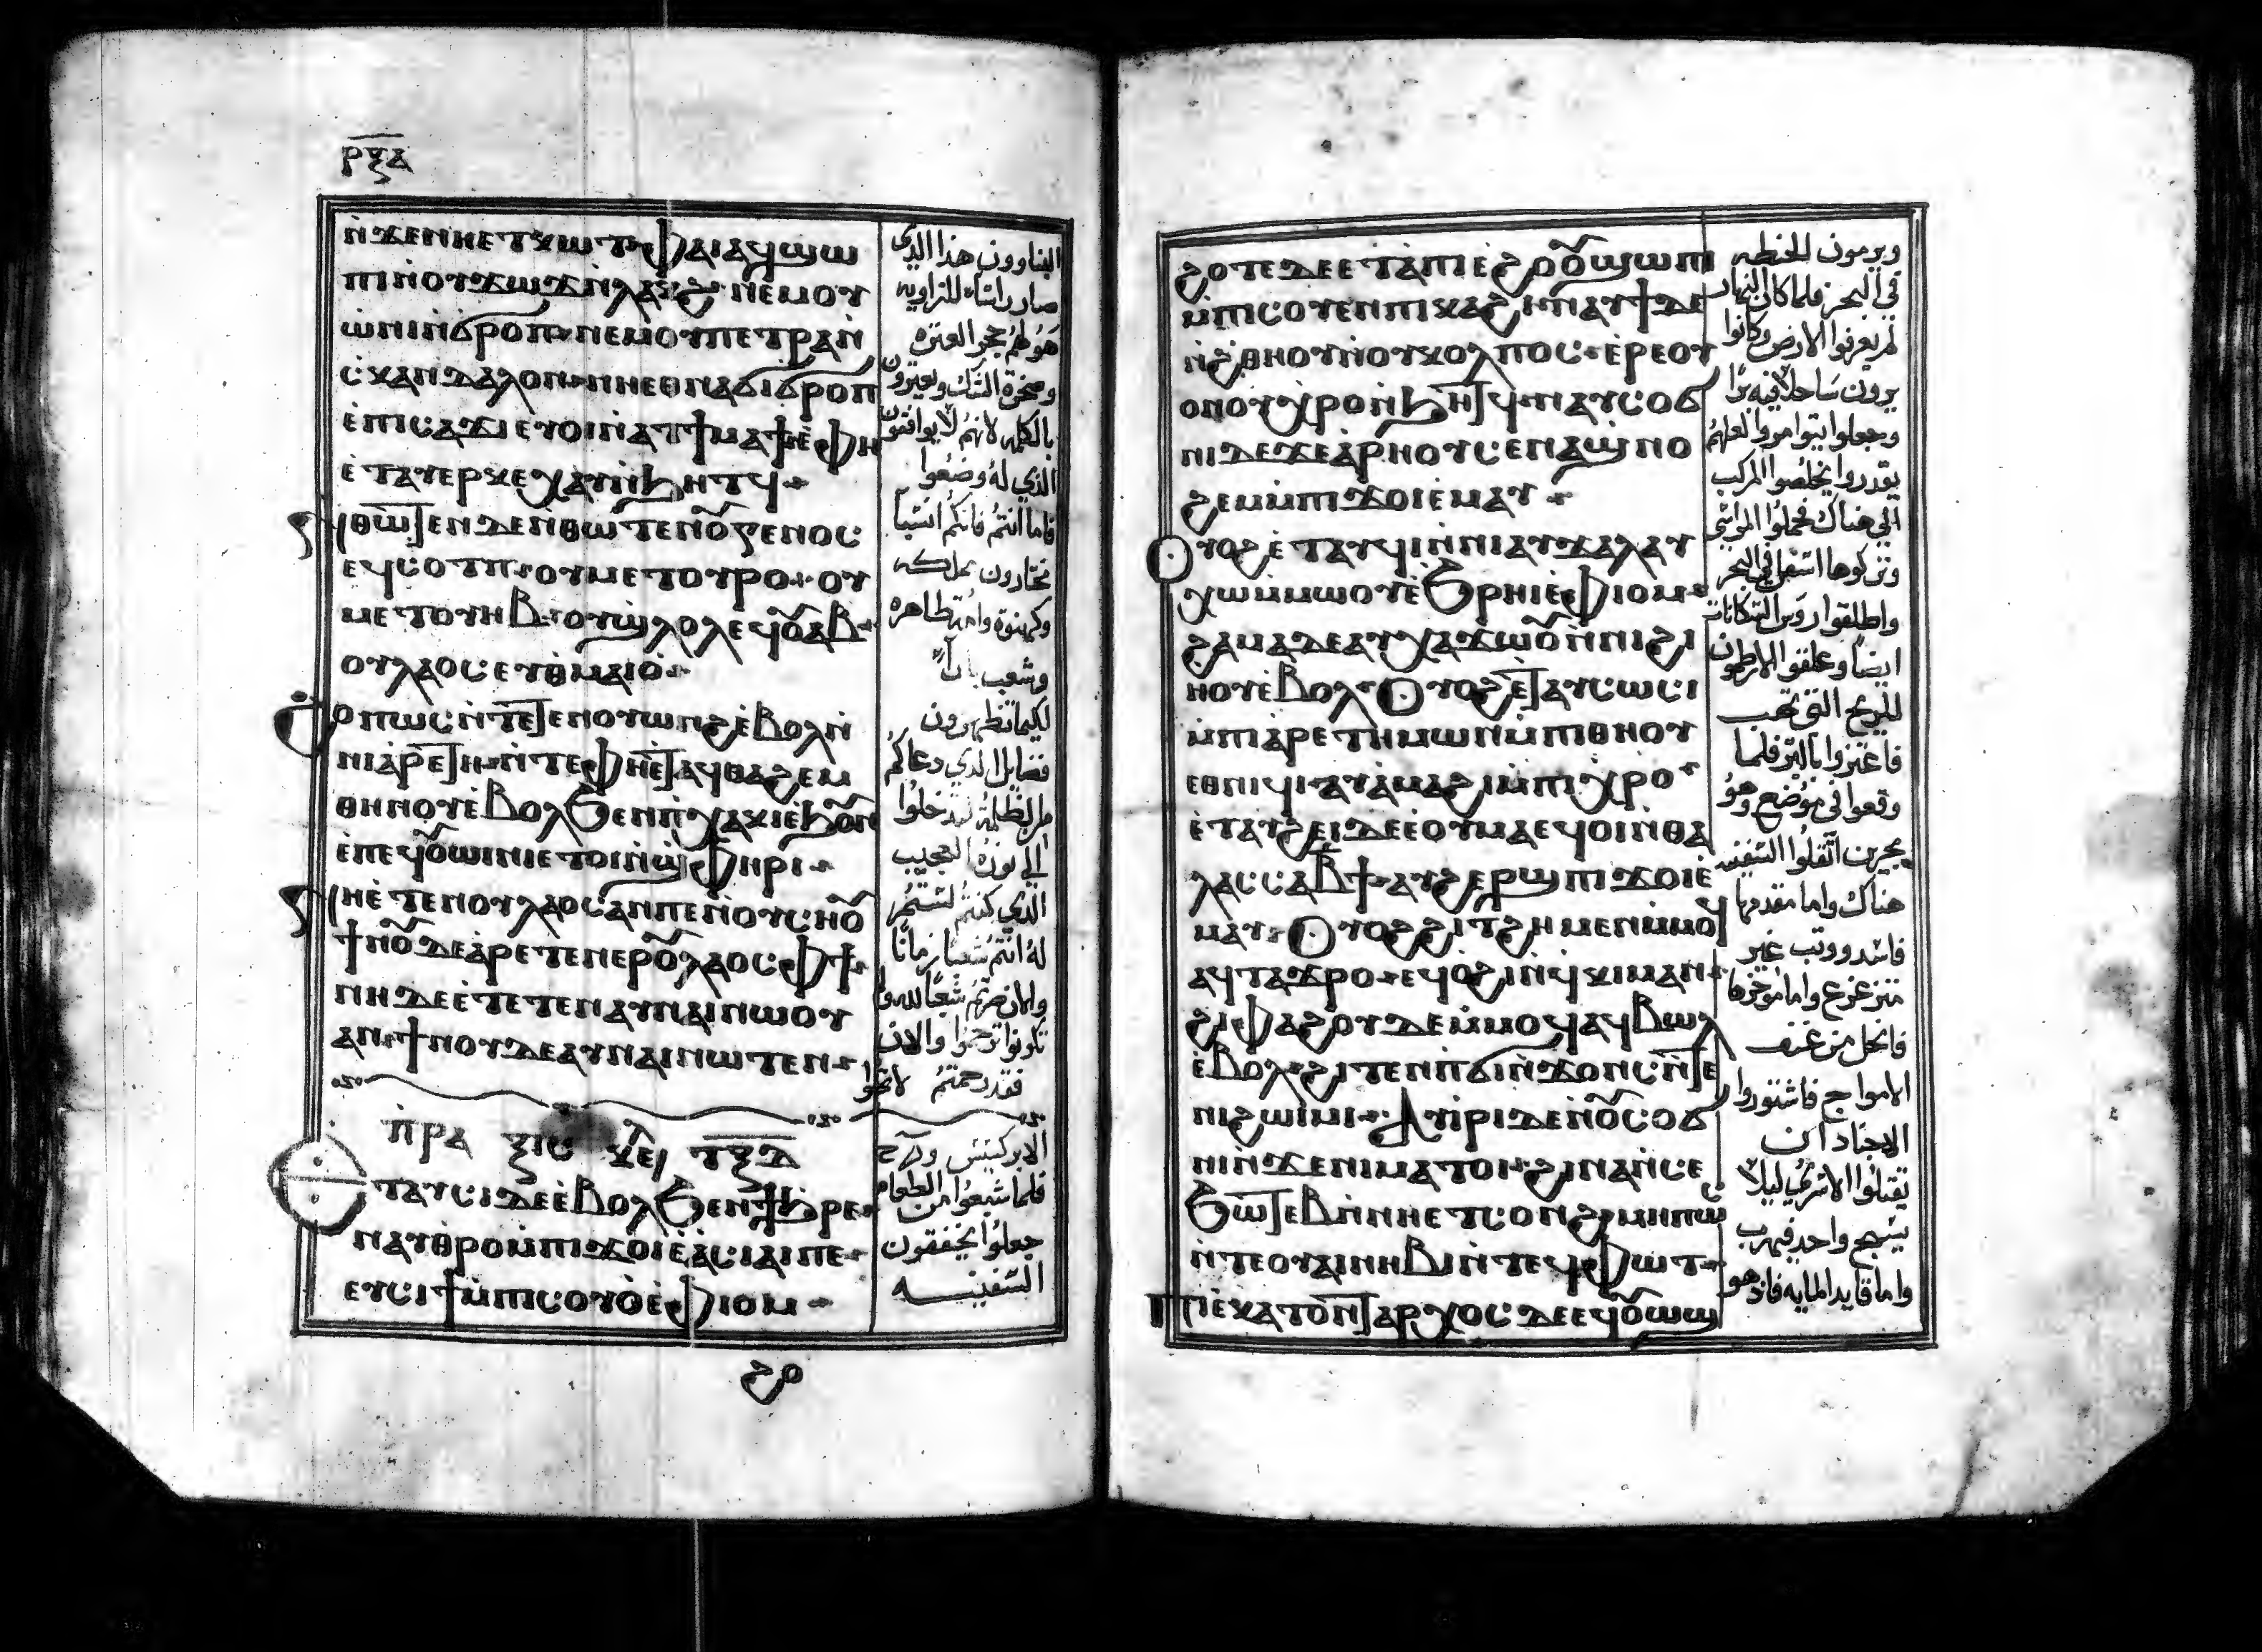 ⲣⲝⲁ
ⲛ̀ϫⲉⲛⲛⲏⲉⲧⲕⲱⲧ ⲫⲁⲓⲁϥϣⲱ
ⲡⲓⲛ̀ⲟⲩϫⲱϫⲛ̀ⲗⲁⲕϩ ⲛⲉⲙⲟⲩ
ⲱ̀ⲛⲓⲛ̀ϭⲣⲟⲡ ⲛⲉⲙⲟⲩⲡⲉⲧⲣⲁⲛ̀
ⲥⲕⲁⲛⲇⲁⲗⲟⲛ ⲛⲏⲉⲑⲛⲁϭⲓϭⲣⲟⲡ
ⲉ̀ⲡⲓⲥⲁϫⲓⲉⲩⲟⲓⲛ̀ⲁⲧϯⲙⲁϯⲉ̀ⲫⲏ
ⲉ̀ⲧⲁⲩⲉⲣⲕⲉⲭⲁⲩⲛ̀ϧⲏⲧϥ
ⲛ̀ⲑⲱⲧⲉⲛⲇⲉⲛ̀ⲑⲱⲧⲉⲛⲟⲩⲅⲉⲛⲟⲥ
ⲉϥⲥⲟⲧⲡ ⲟⲩⲙⲉⲧⲟⲩⲣⲟ ⲟⲩ
ⲙⲉⲧⲟⲩⲏⲃ ⲟⲩϣ̀ⲗⲟⲗⲉϥⲟⲩⲁⲃ
ⲟⲩⲗⲁⲟⲥⲉⲩⲑⲙⲁⲓⲟ̀
ϩⲟⲡⲱⲥⲛ̀ⲧⲉⲧⲉⲛⲟⲩⲱⲛϩⲉ̀ⲃⲟⲗⲛ̀
ⲛⲓⲁ̀ⲣⲉⲧⲏ ⲛ̀ⲧⲉⲫⲏⲉ̀ⲧⲁϥⲑⲁϩⲉⲙ
ⲑⲏⲛⲟⲩⲉ̀ⲃⲟⲗϧⲉⲛⲡⲭⲁⲕⲓⲉ̀ϧⲟⲩⲛ
ⲉ̀ⲡⲉϥⲟⲩⲱⲓⲛⲓⲉⲧⲟⲓⲛ̀ϣ̀ⲫⲏⲣⲓ
ⲛⲏⲉ̀ⲧⲉⲛⲟⲩⲗⲁⲟⲥⲁⲛⲡⲉⲛ̀ⲟⲩⲥⲏⲟⲩ
ϯⲛⲟⲩⲇⲉⲁ̀ⲣⲉⲧⲉⲛⲉⲣⲟⲩⲗⲁⲟⲥⲙ̀ⲫϯ
ⲛⲏⲇⲉⲉ̀ⲧⲉⲧⲉⲛⲁⲩⲛⲁⲓⲛⲱⲟⲩ
ⲁⲛ ϯⲛⲟⲩⲇⲉⲁⲩⲛⲁⲓⲛⲱⲧⲉⲛ
ⲡ̀ⲣⲁ ⲝⲓⲥ ⲕⲉ ⲧⲝⲇ
ⲉⲧⲁⲩⲥⲓⲇⲉⲉ̀ⲃⲟⲗϧⲉⲛϯϧⲣⲉ
ⲛⲁⲩⲑⲣⲟⲙ̀ⲡⲓϫⲟⲓⲉ̀ⲁ̀ⲥⲓⲁⲓⲡⲉ
ⲉⲩⲥⲓϯⲙ̀ⲡⲓⲥⲟⲩⲟ̀ⲉ̀ⲫⲓⲟⲙ
ϩⲟ
البناوون هذا الذي
صار راسًا للزاويه
هو لهم حجر العثره
وصخرة الشك ويعثرون
بالكلمه لانهم لا يوافقون
الذي له وضعوا
فاما انتم فانكم انسبًا
مختارون مملكه
وكهنوة وامة طاهره
وشعب بارًا
لكيما تظهرون
فضايل الذي دعاكم
من الظلمة لتدخلوا
الي نوره العجيب
الذي كنتم
له انتم شعبًا زمانًا
والان صرتم شعبًا لله
تكونوا ترحموا والان
فقد رحمتم
الابركسيس
فلما شبعوا من الطعام
جعلوا يخففون
السفينـه
ϩⲟⲧⲉⲇⲉⲉ̀ⲧⲁⲡⲓⲉ̀ϩⲟⲟⲩϣⲱⲡⲓ
ⲙ̀ⲡⲟⲩⲥⲟⲩⲉⲛⲡⲓⲕⲁϩⲓ ⲛⲁⲩϯⲇⲉ
ⲛ̀ϩⲑⲏⲟⲩⲛ̀ⲟⲩⲕⲟⲗⲡⲟⲥ ⲉ̀ⲣⲉⲟⲩ
ⲟⲛⲟⲩⲭⲣⲟⲛ̀ϧⲏⲧϥ ⲛⲁⲩⲥⲟϭ
ⲛⲓⲇⲉϫⲉⲁ̀ⲣⲏⲟⲩⲥⲉⲛⲁϣ̀ⲛⲟ
ϩⲉⲙⲙ̀ⲡⲓϫⲟⲓⲉ̀ⲙⲁⲩ
ⲟⲩⲟϩⲉ̀ⲧⲁⲩϥⲓⲛ̀ⲛⲓⲁⲩϫⲁⲗⲁⲩ
ⲭⲱⲙ̀ⲙⲱⲟⲩⲉ̀ϧⲣⲏⲓⲉ̀ⲫⲓⲟⲙ
ϩⲁⲙⲁⲇⲉⲁⲩⲭⲁϫⲱⲟⲩⲛ̀ⲛⲓϩⲓ
ⲏⲟⲩⲉ̀ⲃⲟⲗ ⲟⲩⲟϩⲉ̀ⲧⲁⲩⲥⲱⲥⲓ
ⲙ̀ⲡⲓⲁ̀ⲣⲧⲉⲙⲱⲛⲙ̀ⲡⲓⲑⲏⲟⲩ
ⲉⲑⲛⲓϥⲓ ⲁⲩⲁ̀ⲙⲁϩⲓⲙ̀ⲡⲓⲭⲣⲟ
ⲉ̀ⲧⲁⲩϩⲉⲓⲇⲉⲉ̀ⲟⲩⲙⲁⲉϥⲟⲓⲛ̀ⲑⲁ
ⲗⲁⲥⲥⲁⲃϯ ⲁⲩϩⲉⲣϣⲡⲓϫⲟⲓⲉ̀
ⲙⲁⲩ ⲟⲩⲟϩϩⲓⲧϩⲏⲙⲉⲛⲙ̀ⲙⲟϥ
ⲁϥⲧⲁϫⲣⲟ ⲉϥⲟ̀ϩⲓⲛ̀ϥⲕⲓⲙⲁⲛ
ϩⲓⲫⲁϩⲟⲩⲇⲉⲙ̀ⲙⲟϥⲁϥⲃⲱⲗ
ⲉ̀ⲃⲟⲗ ϩⲓⲧⲉⲛⲡϭⲓⲛ̀ϫⲟⲛⲥⲛ̀ⲧⲉ
ⲛⲓϩⲱⲓⲙⲓ ⲁⲩⲓ̀ⲣⲓⲇⲉⲛ̀ⲟⲩⲥⲟϭ
ⲛⲓⲛ̀ϫⲉⲛⲓⲙⲁⲧⲟⲓ ϩⲓⲛⲁⲛ̀ⲥⲉ
ϧⲱⲧⲉⲃⲛ̀ⲛⲏⲉⲧⲥⲟⲛϩ ⲙⲏⲡⲱⲥ
ⲛ̀ⲧⲉⲟⲩⲁⲓⲛⲏⲃⲓⲛ̀ⲧⲉϥⲫⲱⲧ
ⲡⲓⲉ̀ⲕⲁⲧⲟⲛⲧⲁⲣⲭⲟⲥⲇⲉⲉϥⲟⲩⲱϣ
ويرمون للحنطه
في البحر فلما كان النهار
لم يعرفوا الارض وكانوا
يرون ساحلًا فيه برًا
وجعلوا يتوامروا لعلهم
يقدروا يخلصوا المركب
الي هناك فحملوا المراسي
وتركوها اسفل في البحر
واطلقوا روس السكانات
ايضًا وعلقوا الارطمون
للريح التي تهب
فاعتزوا بالبر فلما
وقعوا في موضع وهو
بحرين اثقلوا السفينه
هناك واما مقدمها
فاشد ووتب غير
متزعزع واما موخرها
فانحل من عنف
الامواج فاشتوروا
الاجناد ان
يقتلوا الاسرى ليلًا
يسبح واحد فيهرب
واما قايد المايه فاذ هو